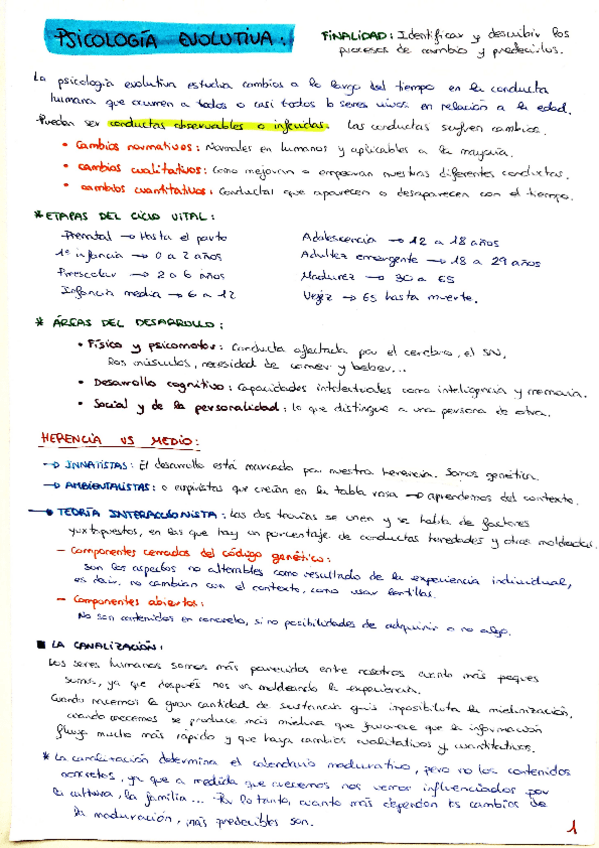 PSICOLOGÍA EVOLUTIVA:
FINALIDAD: Identificar y describir los
procesos de cambio y predecirlos.
La psicología evolutiva estudia cambios a lo largo del tiempo en la conducta
humana que ocurren a todos o casi todos los seres vivos en relación a la edad.
Pueden ser conductas observables o inferidas. Las conductas sufren cambios.
• Cambios normativos: Normales en humanos y aplicables a la mayoría.
• cambios cualitativos: como mejoran o empeoran nuestras diferentes conductas.
• cambios cuantitativos: Conductas que aparecen o desaparecen con el tiempo.
* ETAPAS DEL CICLO VITAL:
Prenatal → Hasta el parto
1ª infancia → 0 a 2 años
Preescolar → 2 a 6 años
Infancia media → 6 a 12
Adolescencia → 12 a 18 años
Adultez emergente → 18 a 29 años
Madurez → 30 a 65
Vejez → 65 hasta muerte.
* ÁREAS DEL DESARROLLO:
• Físico y psicomotor: Conducta afectada por el cerebro, el SN,
los músculos, necesidad de comer y beber...
• Desarrollo cognitivo: Capacidades intelectuales como inteligencia y memoria.
• Social y de la personalidad: lo que distingue a una persona de otra.
HERENCIA VS MEDIO:
→ INNATISTAS: El desarrollo está marcado por nuestra herencia. Somos genética.
→ AMBIENTALISTAS: o empiristas que creían en la tabla rasa → aprendemos del contexto.
→ TEORÍA INTERACCIONISTA: las dos teorías se unen y se habla de factores
yuxtapuestos, en las que hay un porcentaje de conductas heredades y otras moldeadas.
- Componentes cerrados del código genético:
son los aspectos no alterables como resultado de la experiencia individual,
es decir, no cambian con el contexto, como usar lentillas.
- Componentes abiertos:
No son contenidos en concreto, si no posibilidades de adquirir o no algo.
■ LA CANALIZACIÓN:
Los seres humanos somos más parecidos entre nosotros cuanto más peques
somos, ya que después nos va moldeando la experiencia.
Cuando nacemos la gran cantidad de sustancia gris imposibilita la mielinización,
cuando crecemos se produce más mielina que favorece que la información
fluya mucho más rápido y que haya cambios cualitativos y cuantitativos.
* La canalización determina el calendario madurativo, pero no los contenidos
concretos, ya que a medida que crecemos nos vemos influenciados por
la cultura, la familia... Por lo tanto, cuanto más dependan los cambios de
la maduración, más predecibles son.
1